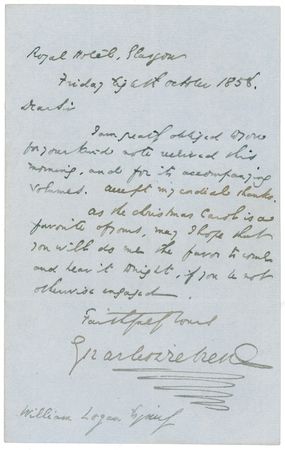 Royal Hotel, Glasgow
Friday Eighth October 1858.
Dear Sir
I am greatly obliged to you
for your kind note received this
morning, and for its accompanying
volumes. Accept my cordial thanks.
As the Christmas Carol is a
favorite of yours, may I hope that
you will do me the favor to come
and hear it tonight, if you be not
otherwise engaged.
Faithfully Yours
Charles Dickens
William Logan Esquire